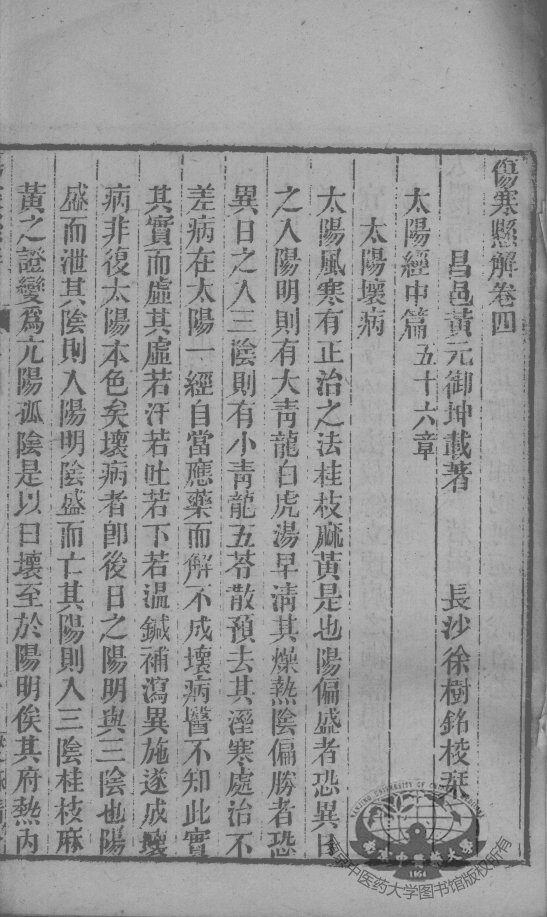 傷寒懸解卷四
昌邑黃元御坤載著　長沙徐樹銘校栞
太陽經中篇五十六章
太陽壞病
太陽風寒有正治之法桂枝麻黃是也陽偏盛者恐異日
之入陽明則有大靑龍白虎湯早淸其燥熱陰偏勝者恐
異日之入三陰則有小靑龍五苓散預去其溼寒處治不
差病在太陽一經自當應藥而解不成壞病醫不知此實
其實而虛其虛若汗若吐若下若溫鍼補瀉異施遂成壞
病非復太陽本色矣壞病者卽後日之陽明與三陰也陽
盛而泄其陰則入陽明陰盛而亡其陽則入三陰桂枝麻
黃之證變爲亢陽孤陰是以曰壞至於陽明俟其府熱內
南京中医药大学图书馆版权所有
1954